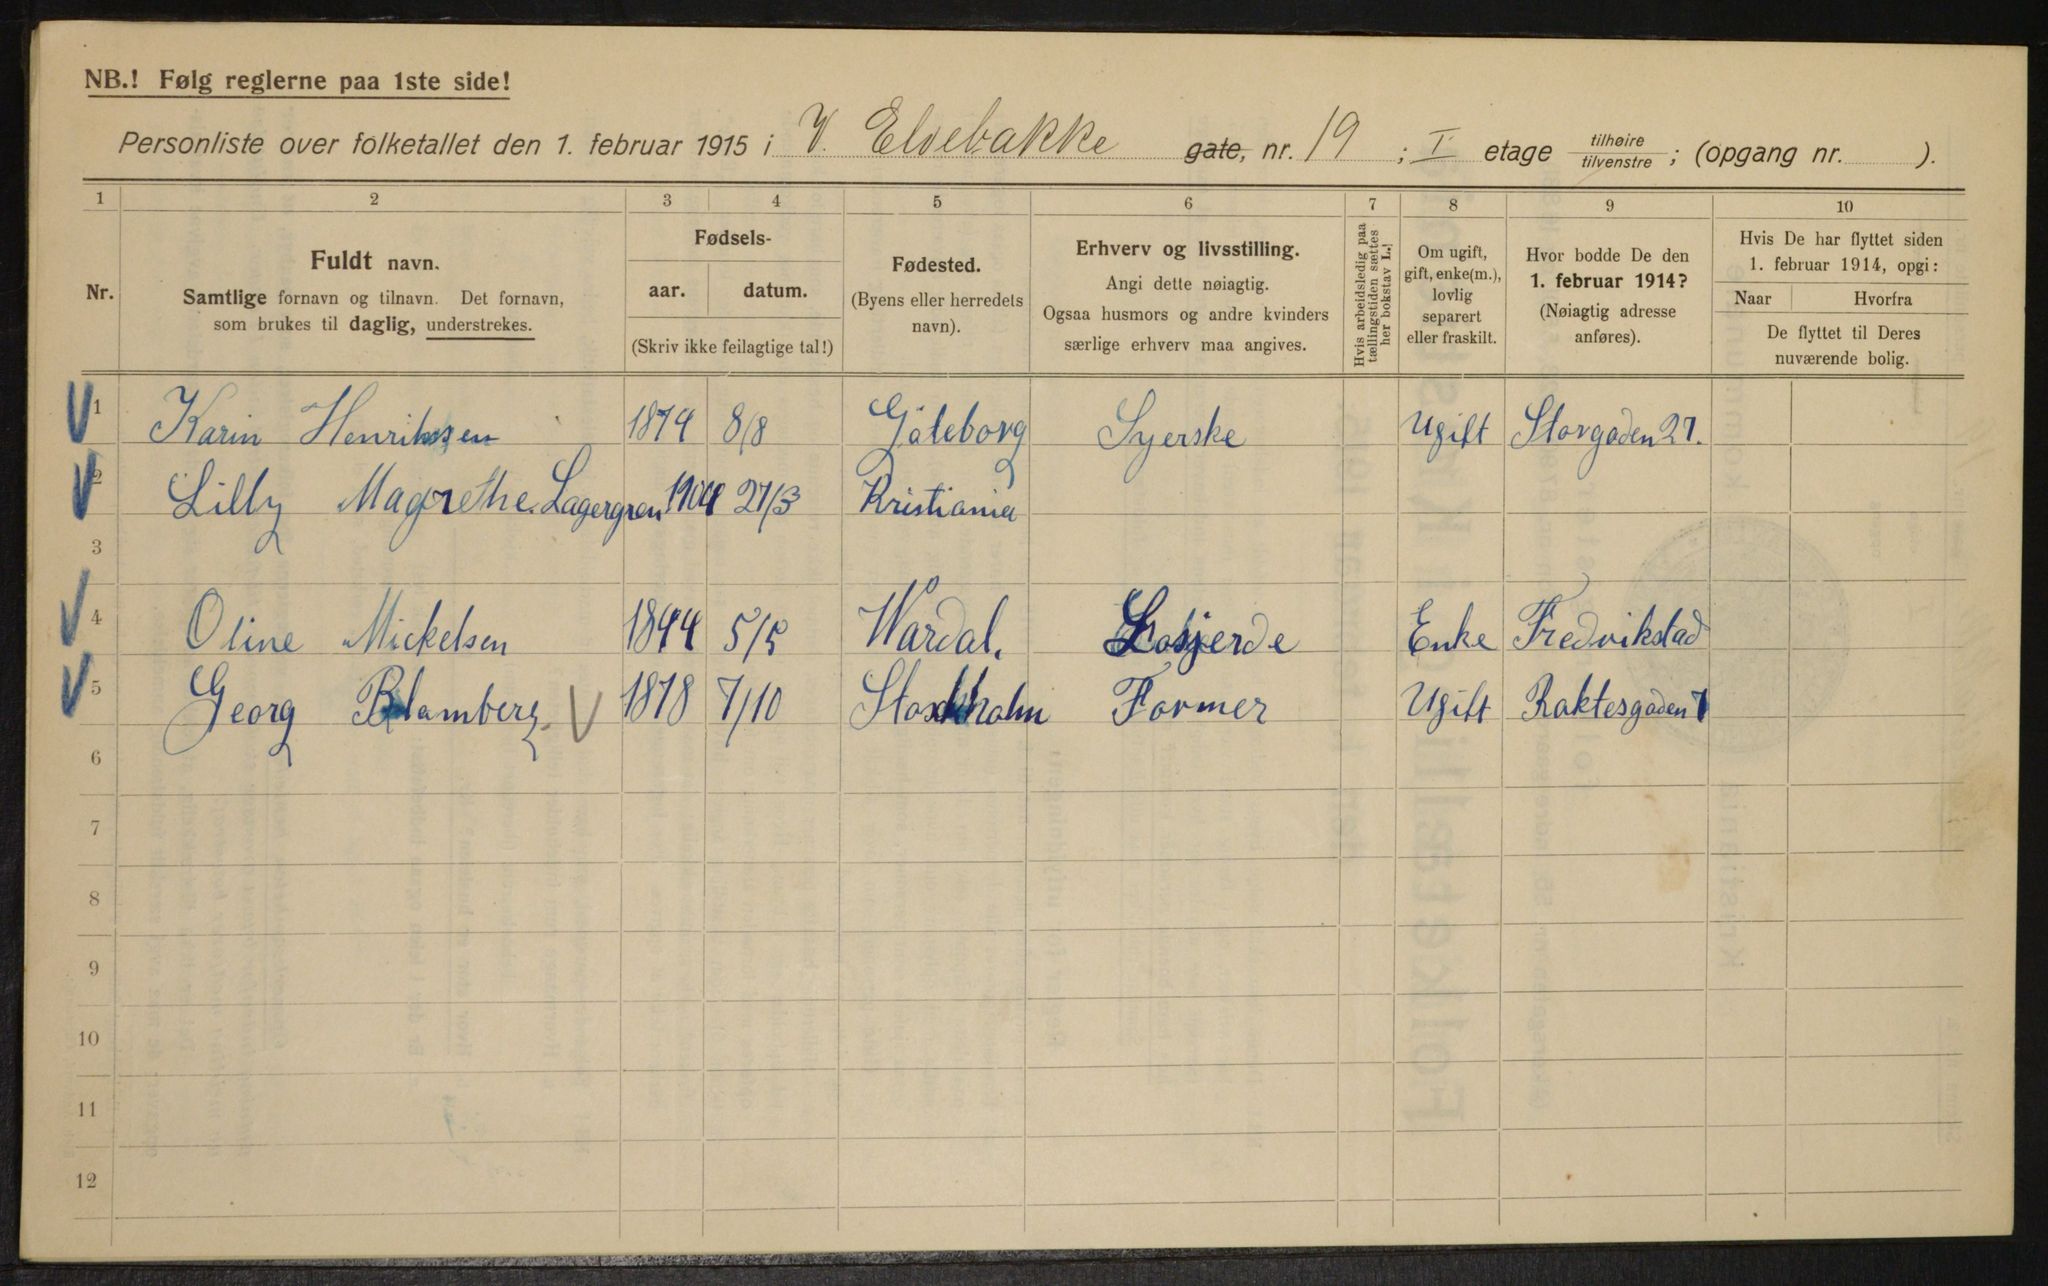 NB.! Følg reglerne paa 1ste side!
Personliste over folketallet den 1. februar 1915 i V. Elvebakke gate, nr. 19 ; I etage tilhøire tilvenstre ; (opgang nr. ).
1 2 3 4 5 6 7 8 9 10
Nr.
Fuldt navn.
Samtlige fornavn og tilnavn. Det fornavn,
som brukes til daglig, understrekes.
Fødsels-
aar. datum.
(Skriv ikke feilagtige tal!)
Fødested.
(Byens eller herredets
navn).
Erhverv og livsstilling.
Angi dette nøiagtig.
Ogsaa husmors og andre kvinders
særlige erhverv maa angives.
Hvis arbeidsledig paa
tællingstiden sættes
her bokstav L.!
Om ugift,
gift, enke(m.),
lovlig
separert
eller fraskilt.
Hvor bodde De den
1. februar 1914?
(Nøiagtig adresse
anføres).
Hvis De har flyttet siden
1. februar 1914, opgi:
Naar Hvorfra
De flyttet til Deres
nuværende bolig.
1 Karin Henriksen 1874 8/8 Göteborg Syerske Ugift Storgaden 27.
2 Lilly Magrethe Lagergren 1904 27/3 Kristiania
3
4 Oline Mickelsen 1844 5/5 Wardal. Losjerde Enke Fredrikstad
5 Georg Blamberg 1878 7/10 Stockholm Former Ugift 7
6
7
8
9
10
11
12